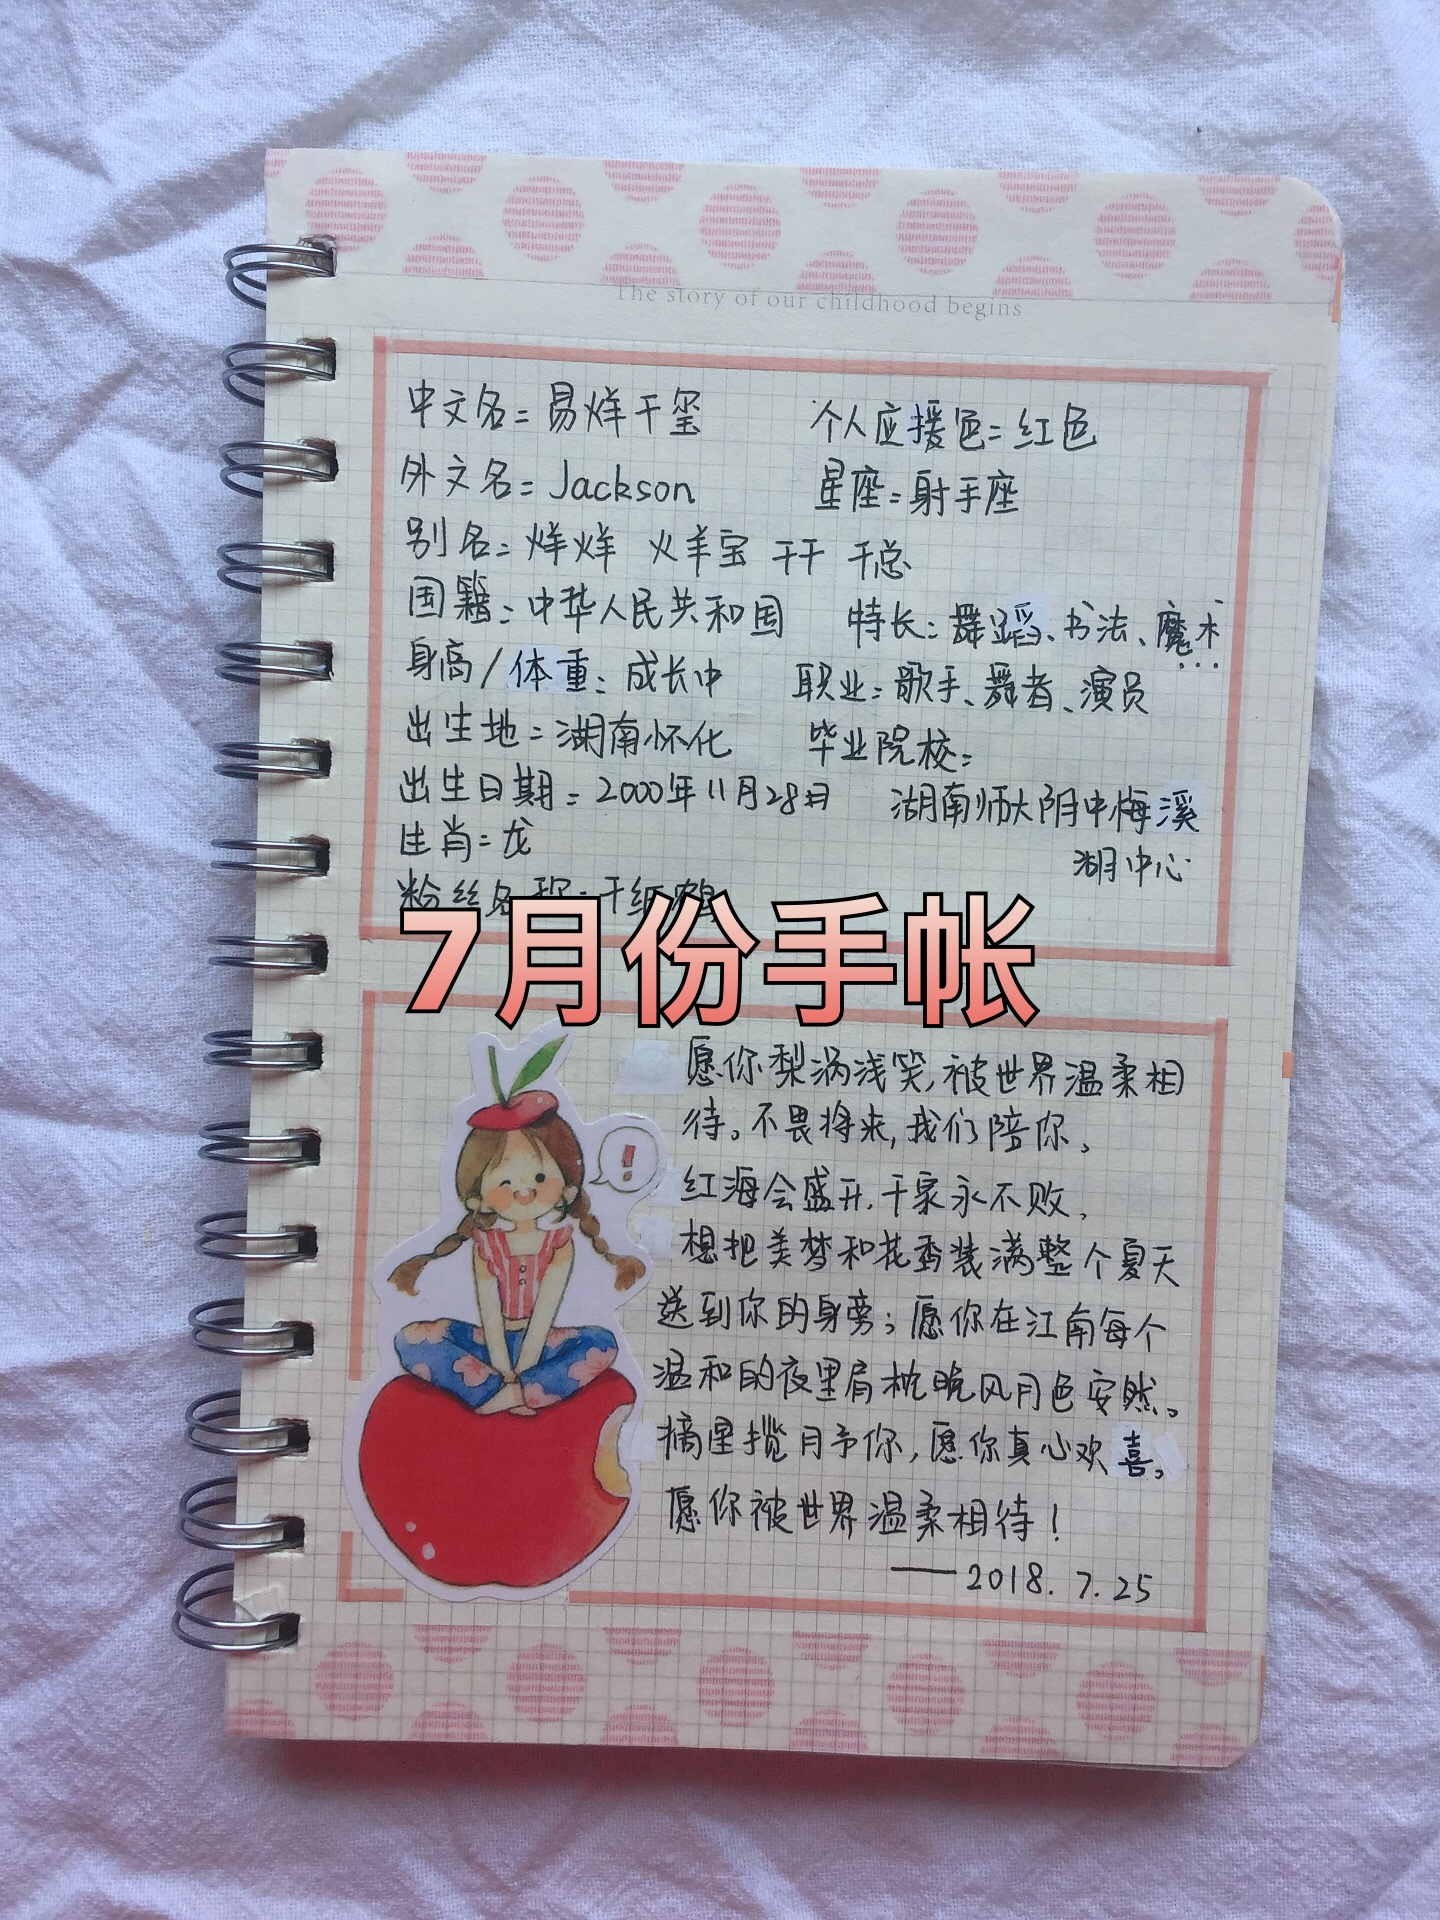 The story of our childhood begins
中文名：易烊千玺 个人应援色：红色
外文名：Jackson 星座：射手座
别名：烊烊 火羊宝 千千 千总
国籍：中华人民共和国 特长：舞蹈、书法、魔术...
身高/体重：成长中 职业：歌手、舞者、演员
出生地：湖南怀化 毕业院校：
出生日期：2000年11月28日 湖南师大附中梅溪
生肖：龙 湖中心
粉丝名称：千纸鹤
7月份手帐
愿你梨涡浅笑,被世界温柔相
待。不畏将来,我们陪你。
红海会盛开,千家永不败。
想把美梦和花香装满整个夏天
送到你的身旁；愿你在江南每个
温和的夜里肩枕晚风月色安然。
摘星揽月予你,愿你真心欢喜。
愿你被世界温柔相待！
——2018.7.25
!